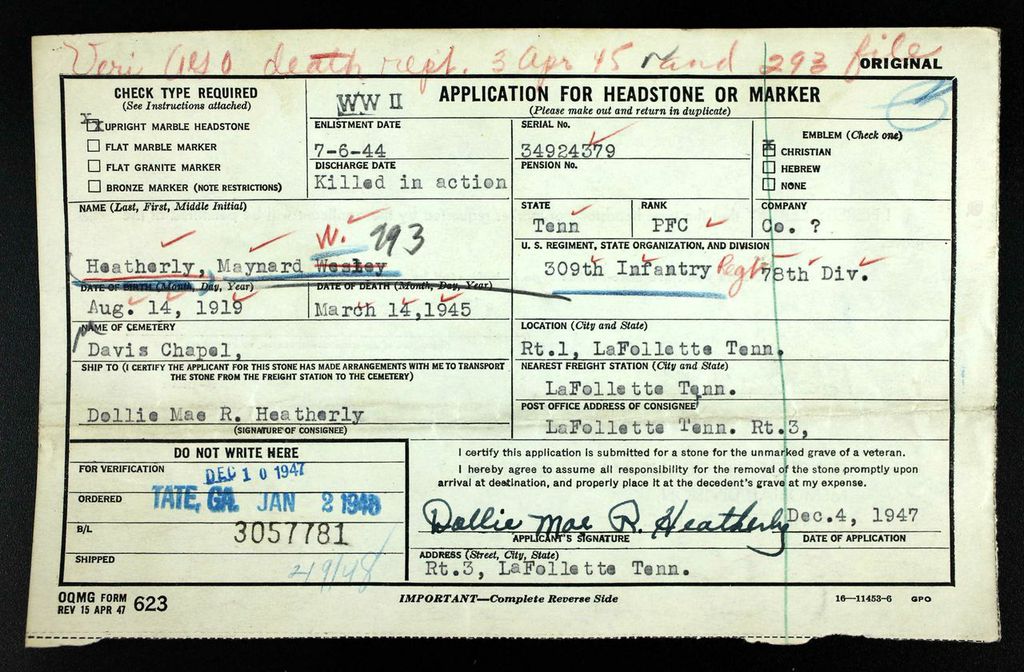 Veri death rept. 3 Apr 45 293 file
ORIGINAL
CHECK TYPE REQUIRED
(See Instructions attached)
UPRIGHT MARBLE HEADSTONE
FLAT MARBLE MARKER
FLAT GRANITE MARKER
BRONZE MARKER (NOTE RESTRICTIONS)
WW II
APPLICATION FOR HEADSTONE OR MARKER
(Please make out and return in duplicate)
ENLISTMENT DATE
7-6-44
DISCHARGE DATE
Killed in action
SERIAL No.
34924379
PENSION No.
EMBLEM (Check one)
CHRISTIAN
HEBREW
NONE
NAME (Last, First, Middle Initial)
W. 293
Heatherly, Maynard Wesley
STATE
Tenn
RANK
PFC
COMPANY
Co. ?
U. S. REGIMENT, STATE ORGANIZATION, AND DIVISION
309th Infantry Regt 78th Div.
DATE OF BIRTH (Month, Day, Year)
Aug. 14, 1919
DATE OF DEATH (Month, Day, Year)
March 14,1945
NAME OF CEMETERY
Davis Chapel,
LOCATION (City and State)
Rt.1, LaFollette Tenn.
SHIP TO (I CERTIFY THE APPLICANT FOR THIS STONE HAS MADE ARRANGEMENTS WITH ME TO TRANSPORT
THE STONE FROM THE FREIGHT STATION TO THE CEMETERY)
Dollie Mae R. Heatherly
(SIGNATURE OF CONSIGNEE)
NEAREST FREIGHT STATION (City and State)
LaFollette Tenn.
POST OFFICE ADDRESS OF CONSIGNEE
LaFollette Tenn. Rt.3,
DO NOT WRITE HERE
FOR VERIFICATION
DEC 10 1947
ORDERED
TATE, GA. JAN 2 1948
B/L
3057781
SHIPPED
2/9/48
I certify this application is submitted for a stone for the unmarked grave of a veteran.
I hereby agree to assume all responsibility for the removal of the stone promptly upon
arrival at destination, and properly place it at the decedent's grave at my expense.
Dollie Mae R. Heatherly
Dec.4, 1947
APPLICANT'S SIGNATURE
DATE OF APPLICATION
ADDRESS (Street, City, State)
Rt.3, LaFollette Tenn.
OQMG FORM
REV 15 APR 47 623
IMPORTANT—Complete Reverse Side
16—11453-6 GPO